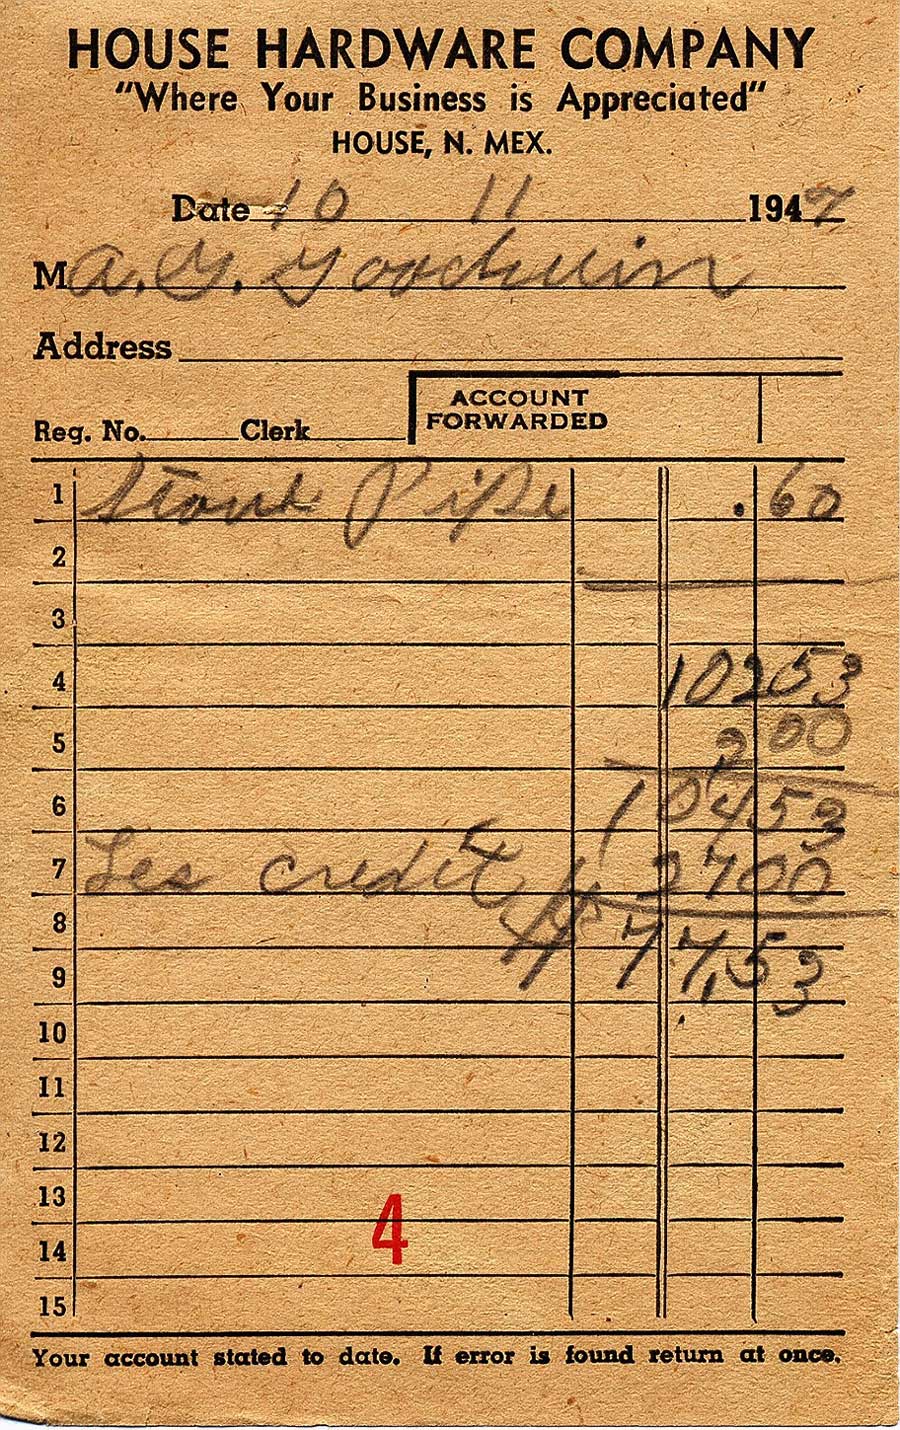 HOUSE HARDWARE COMPANY
"Where Your Business is Appreciated"
HOUSE, N. MEX.
Date 10 11 1947
M A. G. Goodwin
Address
ACCOUNT
FORWARDED
Reg. No. Clerk
1 Stove Pipe .60
2
3
4 10253
5 2 00
6 10453
7 Les credit 2700
8
9 77.53
10
11
12
13
4
14
15
Your account stated to date. If error is found return at once.